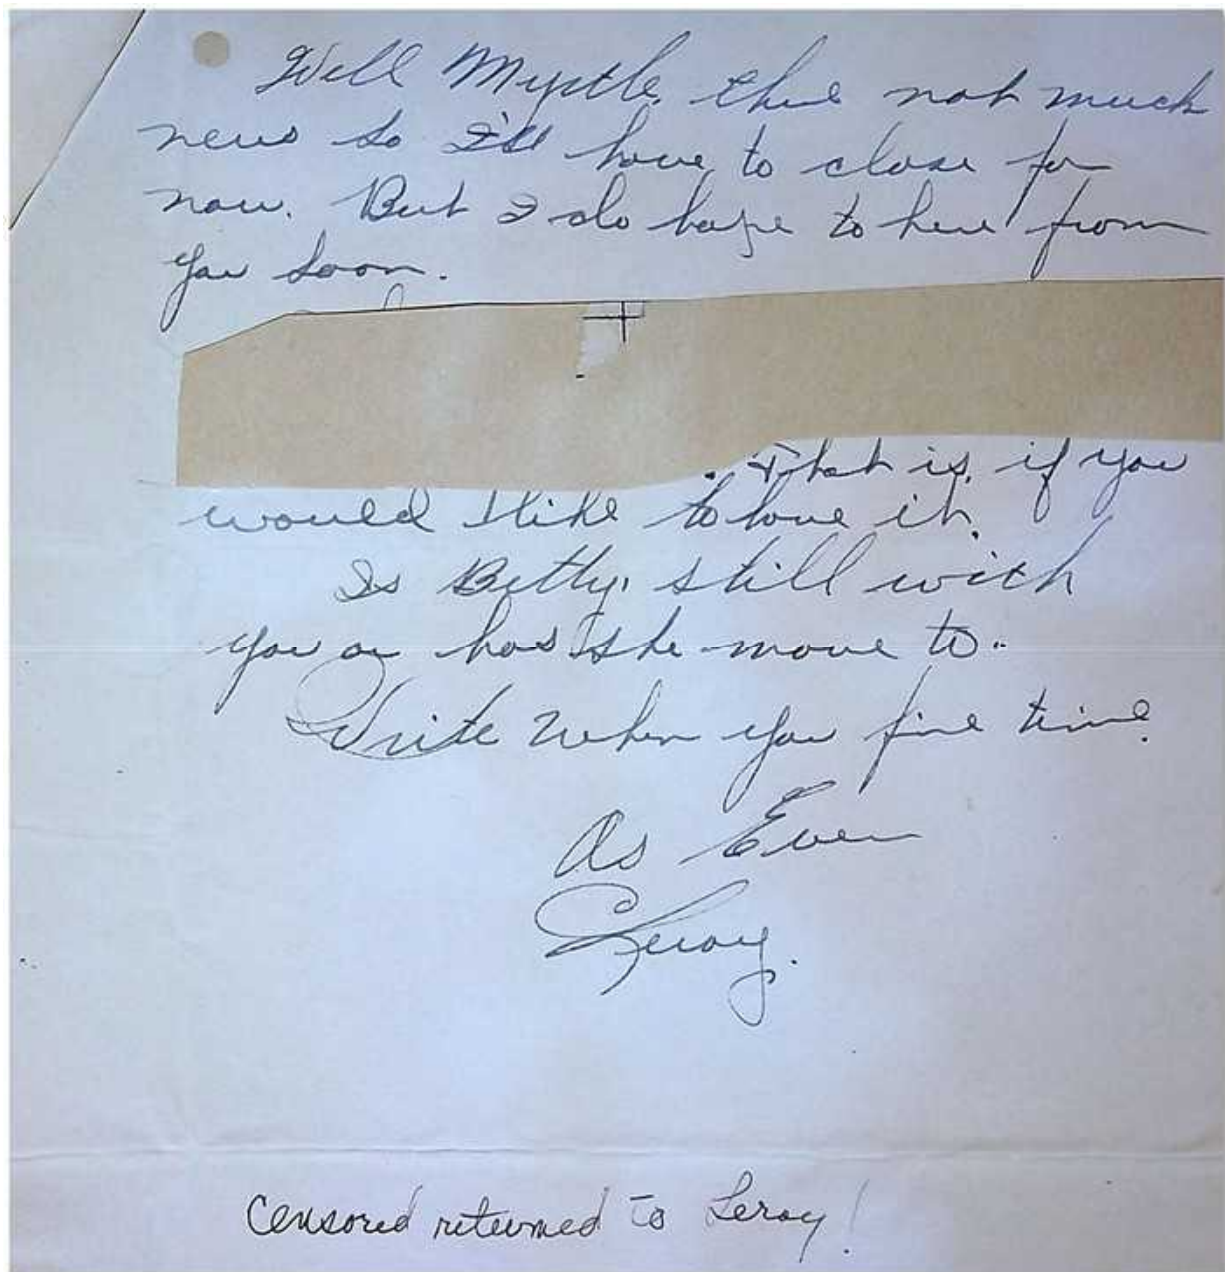 Well Myrtle, there not much
news so I'll have to close for
now. But I do hope to here from
you soon.
. That is, if you
would like to have it.
Is Betty, still with
you or has she move to..
Write when you fine time.
As Ever
Leroy.
Censored returned to Leroy!